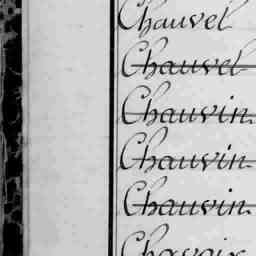 Chauvel
Chauvel
Chauvin
Chauvin
Chauvin